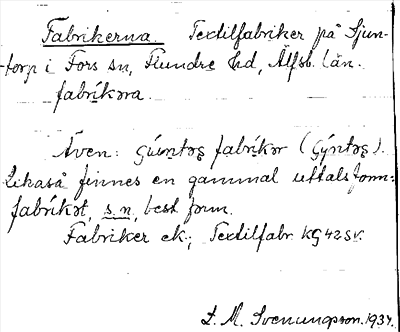 Fabrikerna. Textilfabriker på Sjun-
torp i Fors sn, Flundre hd, Älfsb. län.
fabríkəra.
Även: fabríkər
Likaså finnes en gammal uttalsform:
fabríkət, s.n., best form.
Fabriker ek.; Textilfabr. KG42SV.
L. M. Svenungsson. 1934.